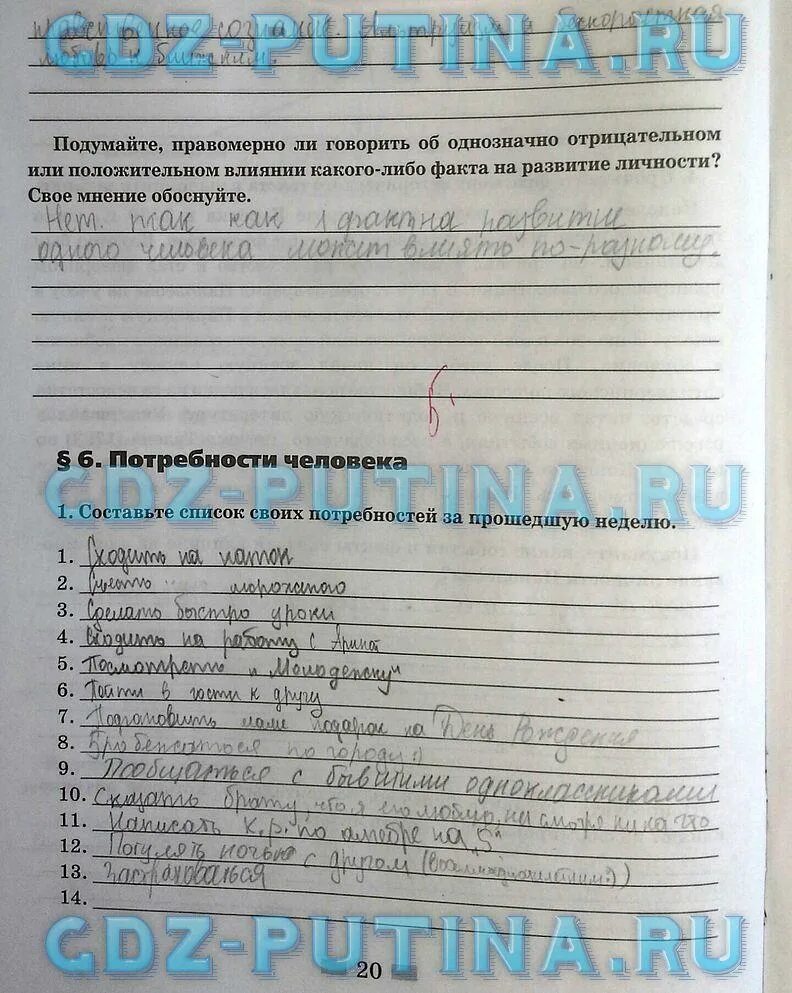 нравственное сознание. Альтруизм и бескорыстная
любовь к ближним.
GDZ-PUTINA.RU
Подумайте, правомерно ли говорить об однозначно отрицательном
или положительном влиянии какого-либо факта на развитие личности?
Свое мнение обоснуйте.
Нет. так как 1 факт на развитие
одного человека может влиять по-разному.
GDZ-PUTINA.RU
§ 6. Потребности человека
1. Составьте список своих потребностей за прошедшую неделю.
1. Сходить на каток
2. Съесть мороженого
3. Сделать быстро уроки
4. Сходить на работу с Ариной
5. Посмотреть "Молодежку"
6. Пойти в гости к другу
7. Подготовить маме подарок на День Рождения
8. по городу :)
9. Пообщаться с бывшими одноклассниками
10. Сказать брату, что я его люблю, не смотря ни на что
11. Написать к.р. по алгебре на "5"
12. Погулять ночью с другом
13. Застраховаться
14.
GDZ-PUTINA.RU
20